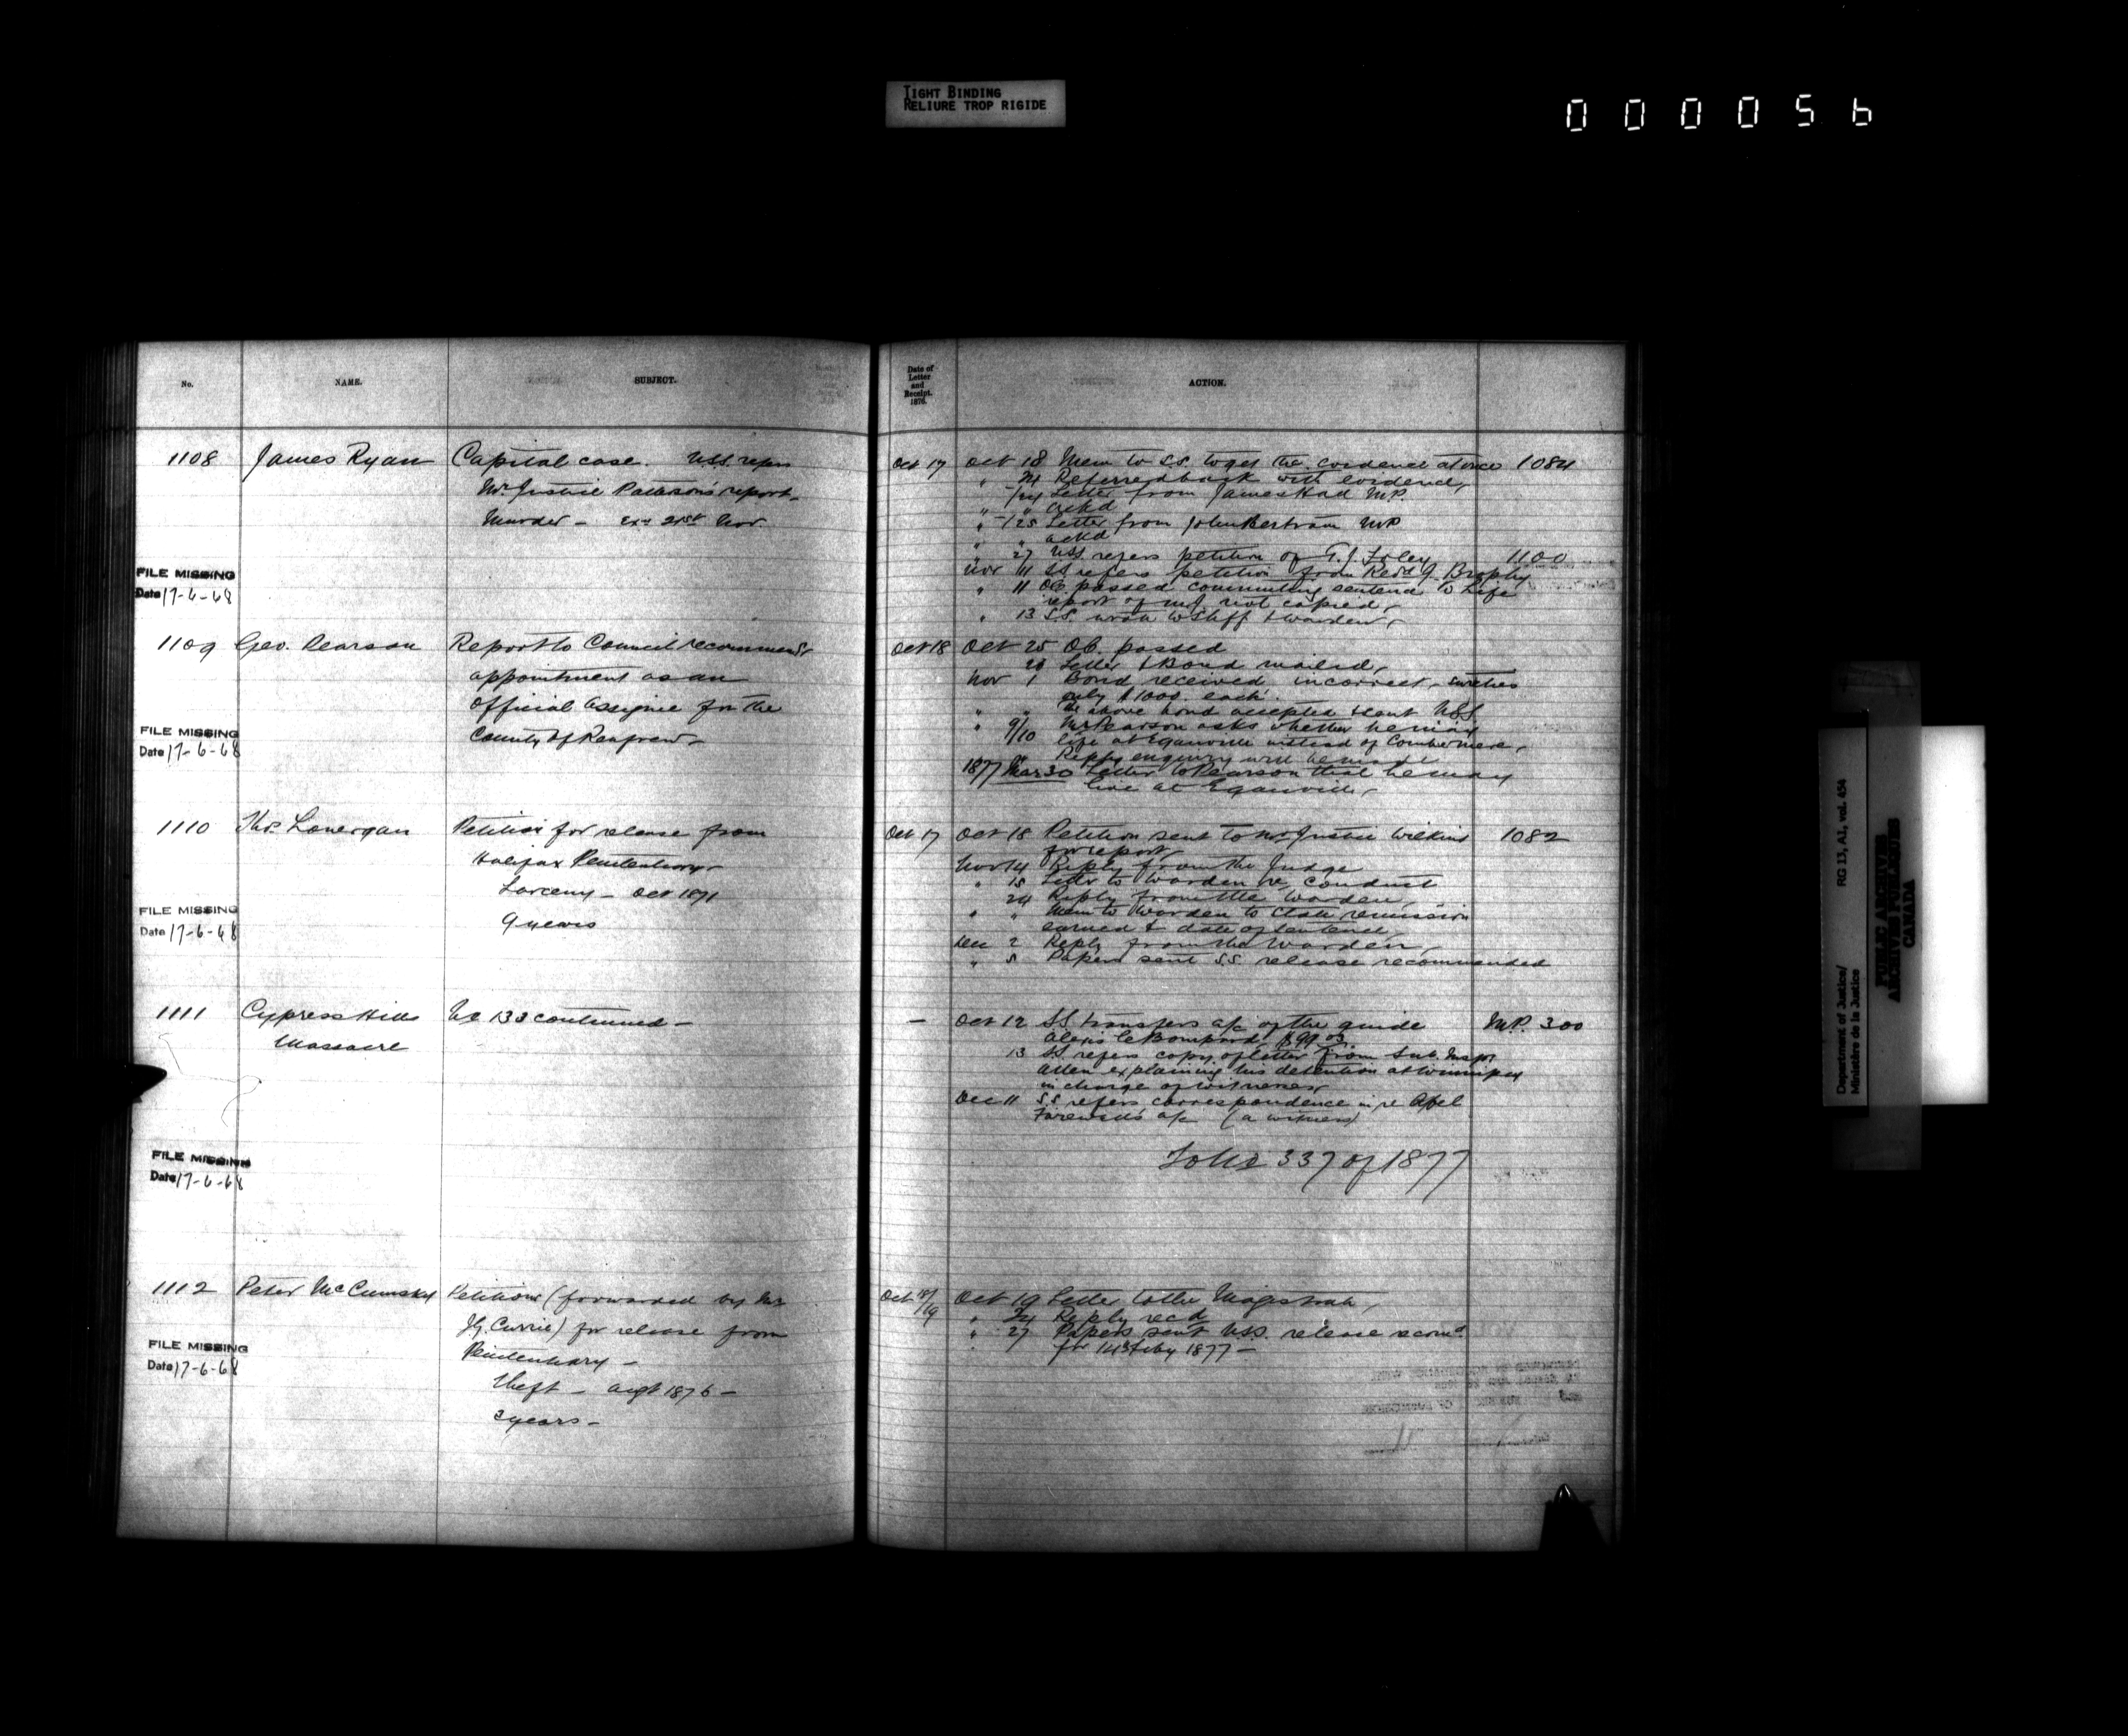 TIGHT BINDING
RELIURE TROP RIGIDE
000056
No.
NAME.
SUBJECT.
Date of
Letter
and
Receipt.
1876.
ACTION.
1108 James Ryan Capital case. U.S.S. refers
Mr Justice Patterson's report -
Murder - Exn 21st Nov
FILE MISSING
Date 17-6-68
Oct 17 Oct 18 Mem to S.S. to get the evidence at once 1084
" 24 Referred back with evidence
/24 Letter from James MP.
" " ackd
" /25 Letter from John Bertram MP
" " ackd
" 27 U.S.S. refers petition of G. J. Foley 1100
Nov 11 S.S. refers petition from Revd J. Brophy
" 11 O.C. passed commuting sentence to Life
report of M.J. not copied
" 13 S.S. wrote to Sheff & Warden
1109 Geo. Pearson Report to Council recommends
appointment as an
Official Assignee for the
County of Renfrew -
FILE MISSING
Date 17-6-68
Oct 18 Oct 25 O.C. passed
Letter & Bond mailed
Nov 1 Bond received incorrect - sureties
only $1000. each.
" " The above bond accepted & sent U.S.S.
" 9/10 Mr Pearson asks whether he may
live at Eganville instead of Combermere
" Reply enquiry will be made
1877 Mar 30 Letter to Pearson that he may
live at Eganville
1110 Thos. Lonergan Petition for release from
Halifax Penitentiary
Larceny - Oct 1871
9 years
FILE MISSING
Date 17-6-68
Oct 17 Oct 18 Petition sent to Mr Justice Wilkins 1082
for report
Nov 14 Reply from the Judge
" 15 Letter to Warden re conduct
24 Reply from the Warden
" " Mem to Warden to state remission
earned & date of sentence
Dec 2 Reply from the Warden
" 5 Papers sent S.S. release recommended
1111 Cypress Hills No 133 continued -
Massacre
FILE MISSING
Date 17-6-68
- Oct 12 S.S. transfers a/c of the guide M.P. 300
Alexis LeBompard $99.03
13 S.S. refers copy of letter from Sub. Inspr
Allen explaining his detention at Winnipeg
in charge of witnesses
Dec 11 S.S. refers correspondence in re Abel
Farewell's a/c (a witness)
Folio 337 of 1877
1112 Peter McCumskey Petitions (forwarded by Mr
J.G. Currie) for release from
Penitentiary -
theft - Augt 1876 -
3 years -
FILE MISSING
Date 17-6-68
Oct 18/19 Oct 19 Letter to the Magistrate
" 24 Reply recd
" 27 Papers sent U.S.S. release recomd
for 14 Feby 1877 -
Department of Justice/
Ministère de la Justice
RG 13, A1, vol. 454
PUBLIC ARCHIVES
ARCHIVES PUBLIQUES
CANADA